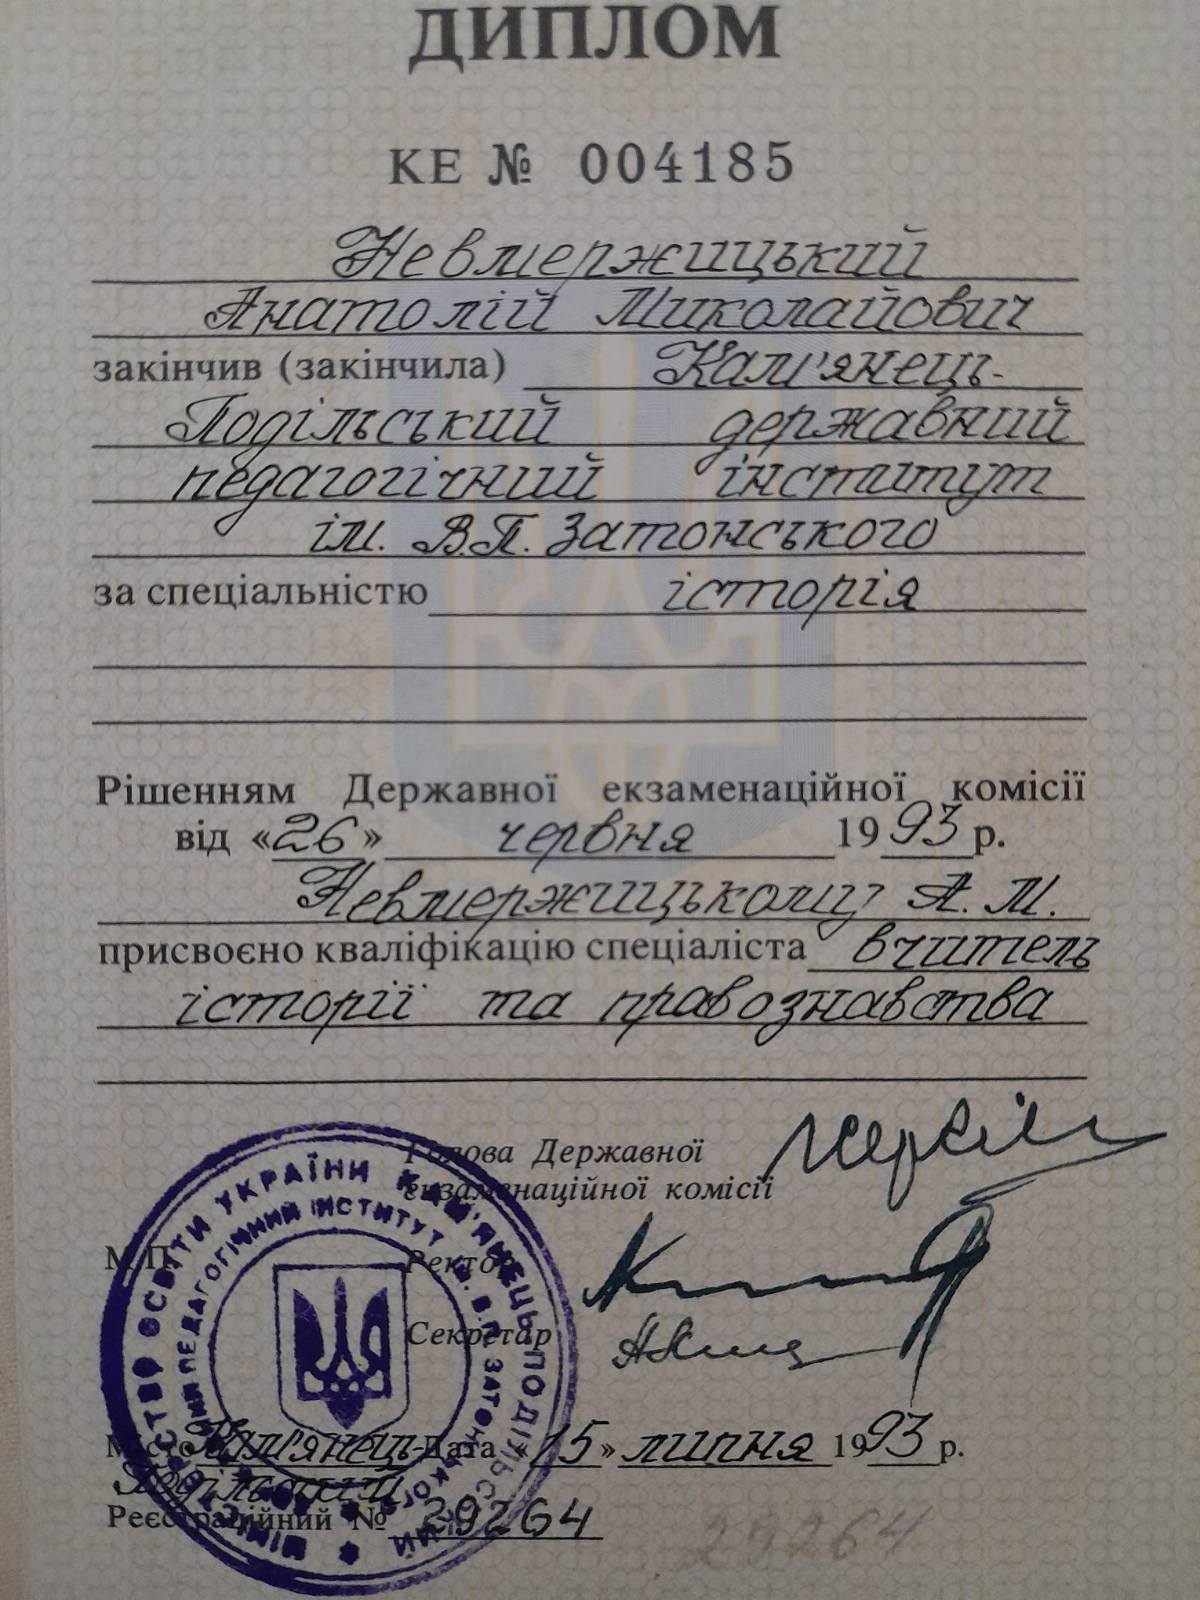 ДИПЛОМ
КЕ № 004185
Невмержицький
Анатолій Миколайович
закінчив (закінчила) Кам'янець-
Подільський державний
педагогічний інститут
ім. В.П. Затонського
за спеціальністю історія
Рішенням Державної екзаменаційної комісії
від «26» червня 1993 р.
Невмержицькому А. М.
присвоєно кваліфікацію спеціаліста вчитель
історії та правознавства
Голова Державної
екзаменаційної комісії
М.П.
Ректор
Секретар
МІНІСТЕРСТВО ОСВІТИ УКРАЇНИ КАМ'ЯНЕЦЬ-ПОДІЛЬСЬКИЙ
ПЕДАГОГІЧНИЙ ІНСТИТУТ ІМ. В.П. ЗАТОНСЬКОГО
Місто Кам'янець- Дата «15» липня 1993 р.
Подільський
Реєстраційний № 29264
29264